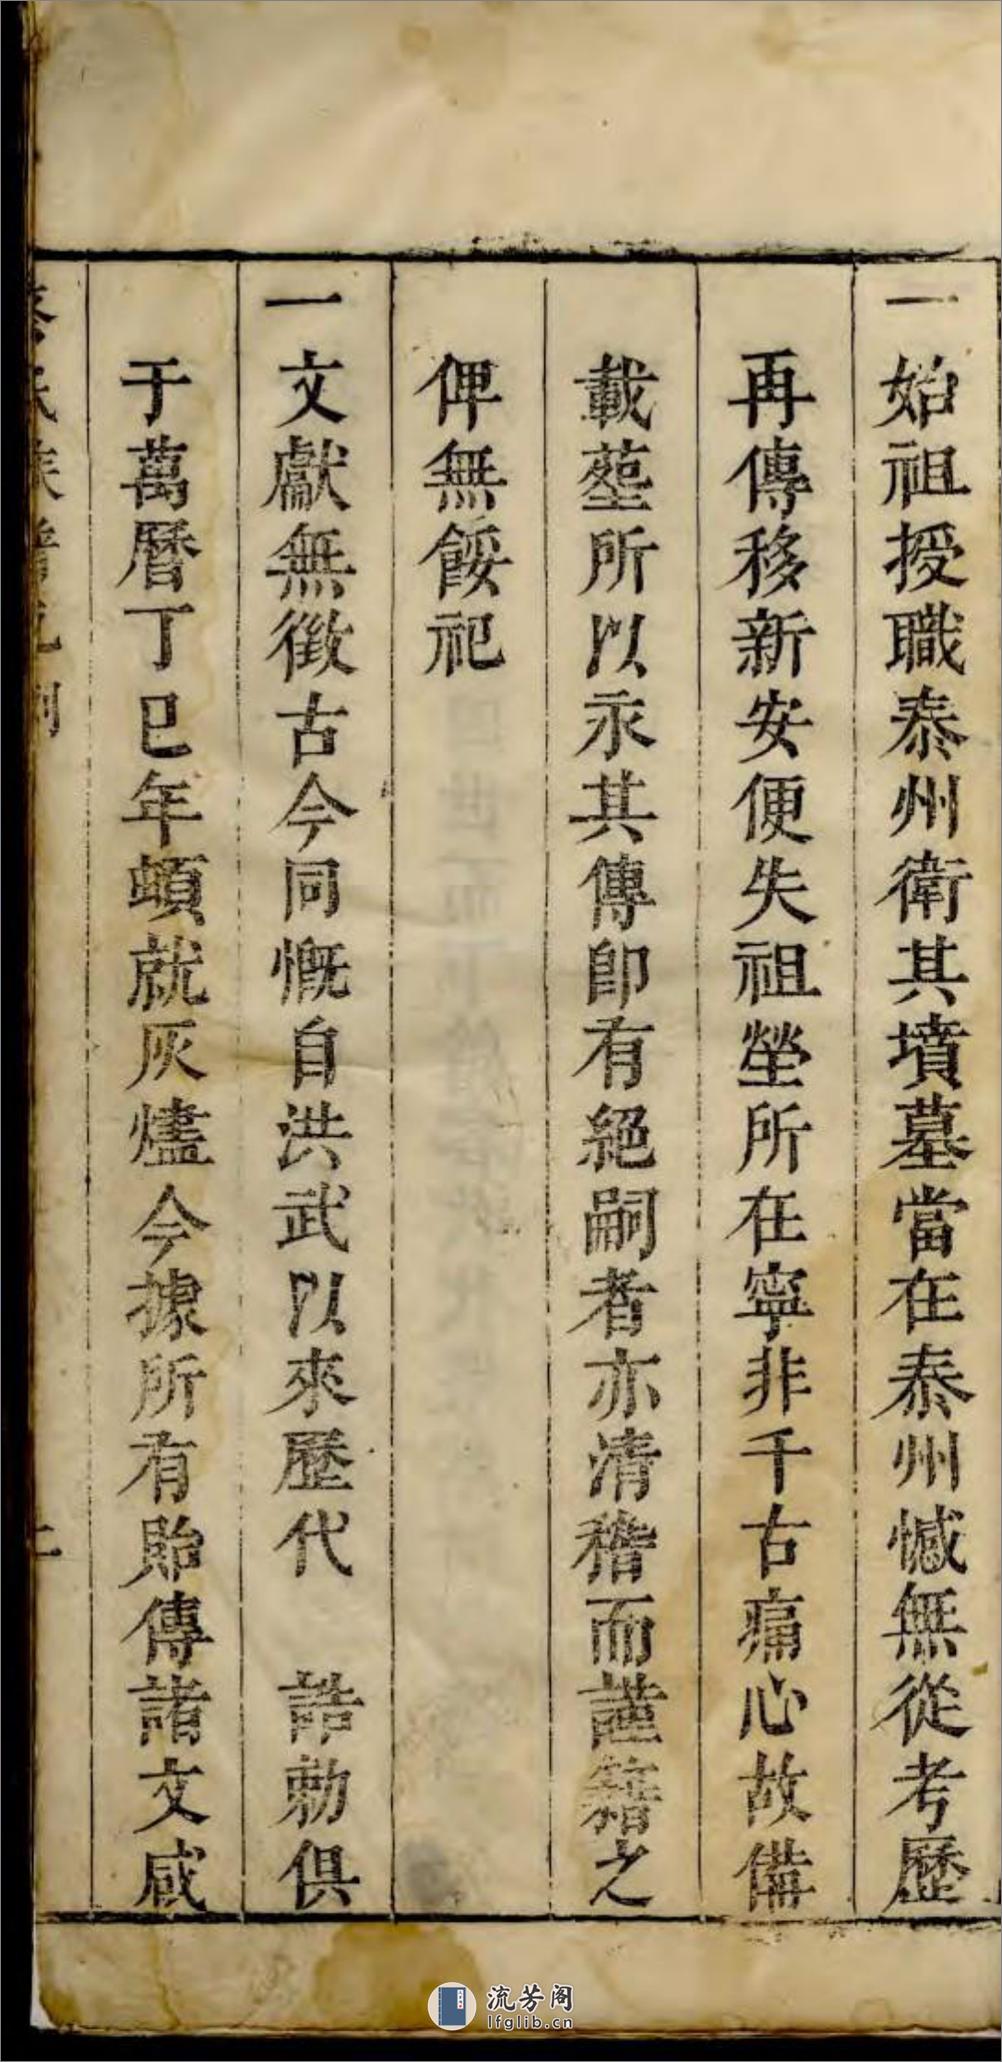 一始祖授職泰州衛其墳墓當在泰州憾無從考歷
再傳移新安便失祖塋所在寧非千古痛心故備
載塟所以永其傳卽有絕嗣者亦清稽而謹籍之
俾無餒祀
一文獻無徵古今同慨自洪武以來歷代　誥勅俱
于萬曆丁巳年頓就灰燼今據所有貽傳諸文咸
流芳阁
lfglib.cn